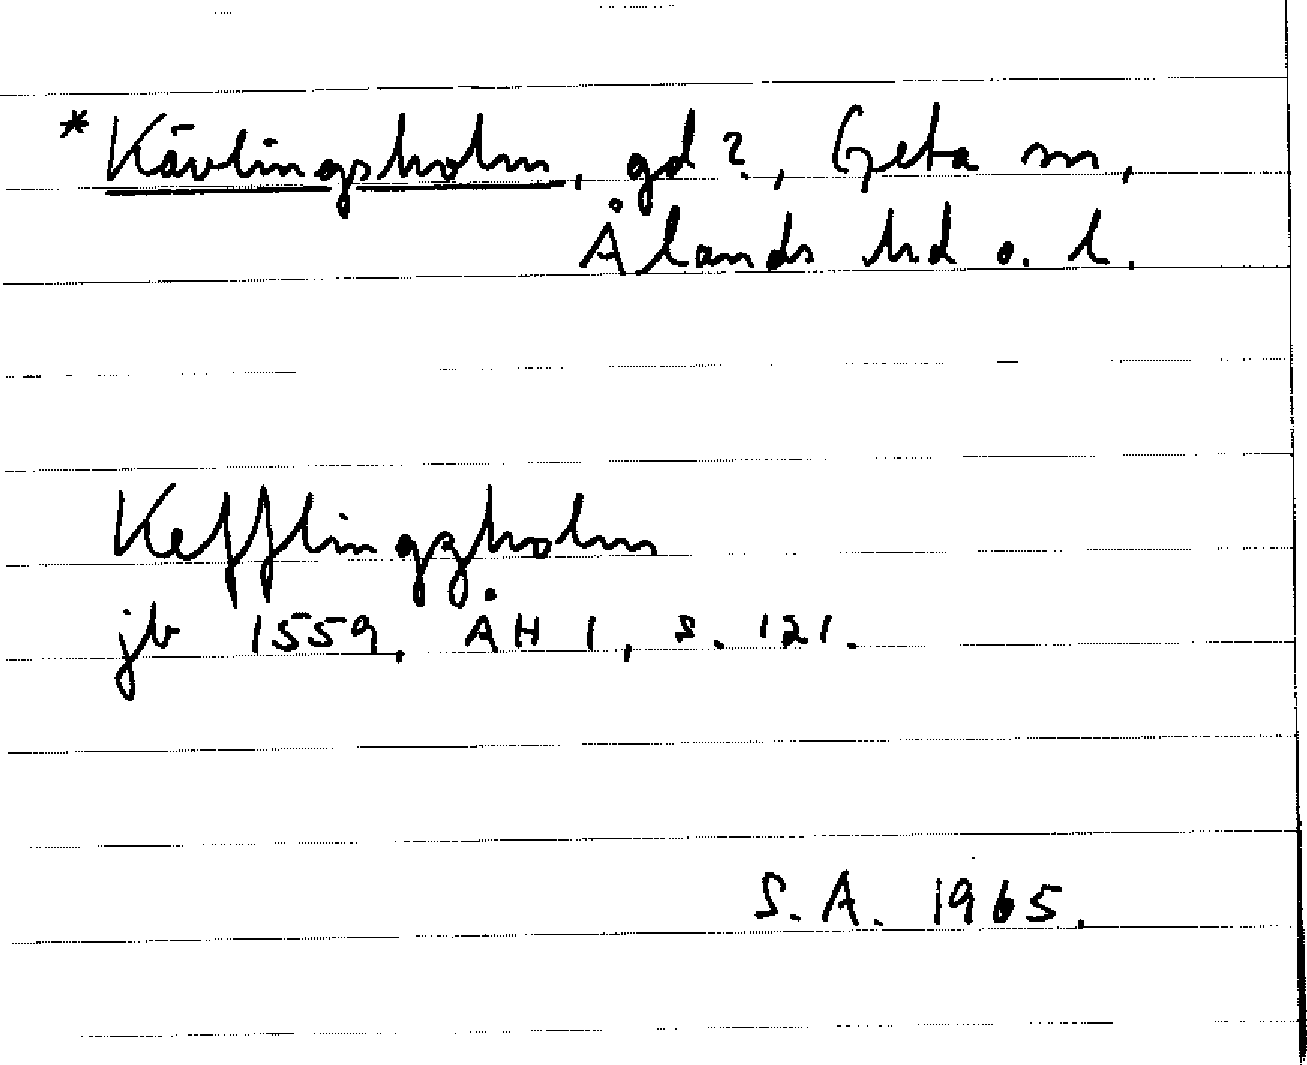 *Kävlingsholm, gd?, Geta sn,
Ålands hd o. l.
Kefflingzholm
jb 1559, ÅH I, s. 121.
S.A. 1965.